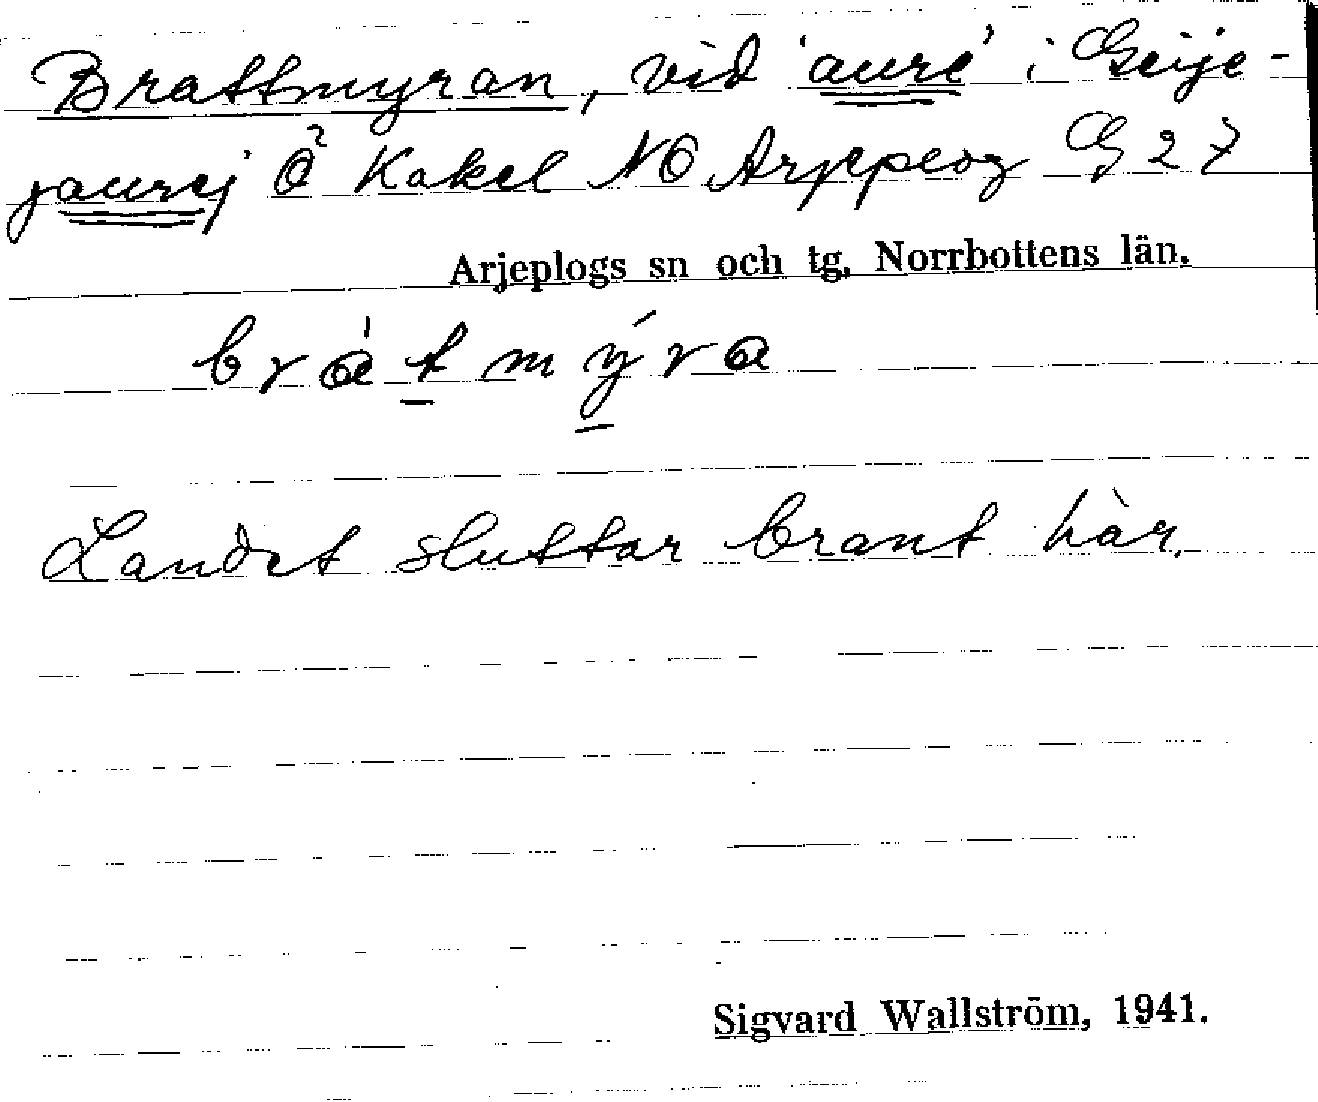 Brattmyran, vid 'aure' i Geije-
jaurej Ö Kakel NO Arjeplog G 27
Arjeplogs sn och tg. Norrbottens län.
bràtmýra
Landet sluttar brant här.
Sigvard Wallström, 1941.